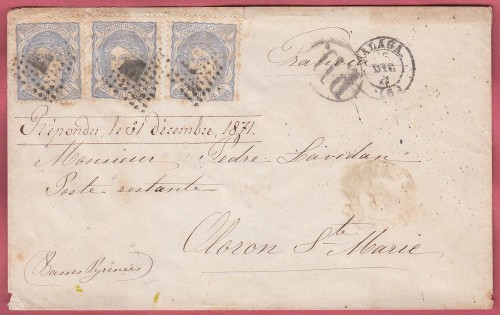 COMUNICACIONES COMUNICACIONES COMUNICACIONES
Francia
P.D.
MALAGA
DIC
Répondu, le 31 décembre, 1871.
Monsieur Pedre Lavedan
Poste restante
Oloron Ste Marie
(Basses Pyrénées)